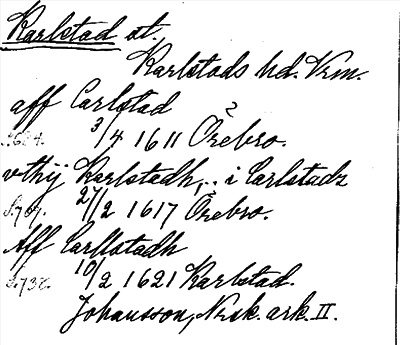 Karlstad st.,
Karlstads hd. Vrm.
aff Carlstad
S. 684. 3/4 1611 Örebro. ?
vthij Karlstadh,.. i Carlstadz
S. 707. 27/2 1617 Örebro.
Aff Carllstadh
S. 732. 10/2 1621 Karlstad.
Johansson, Nrsk. ark. II.